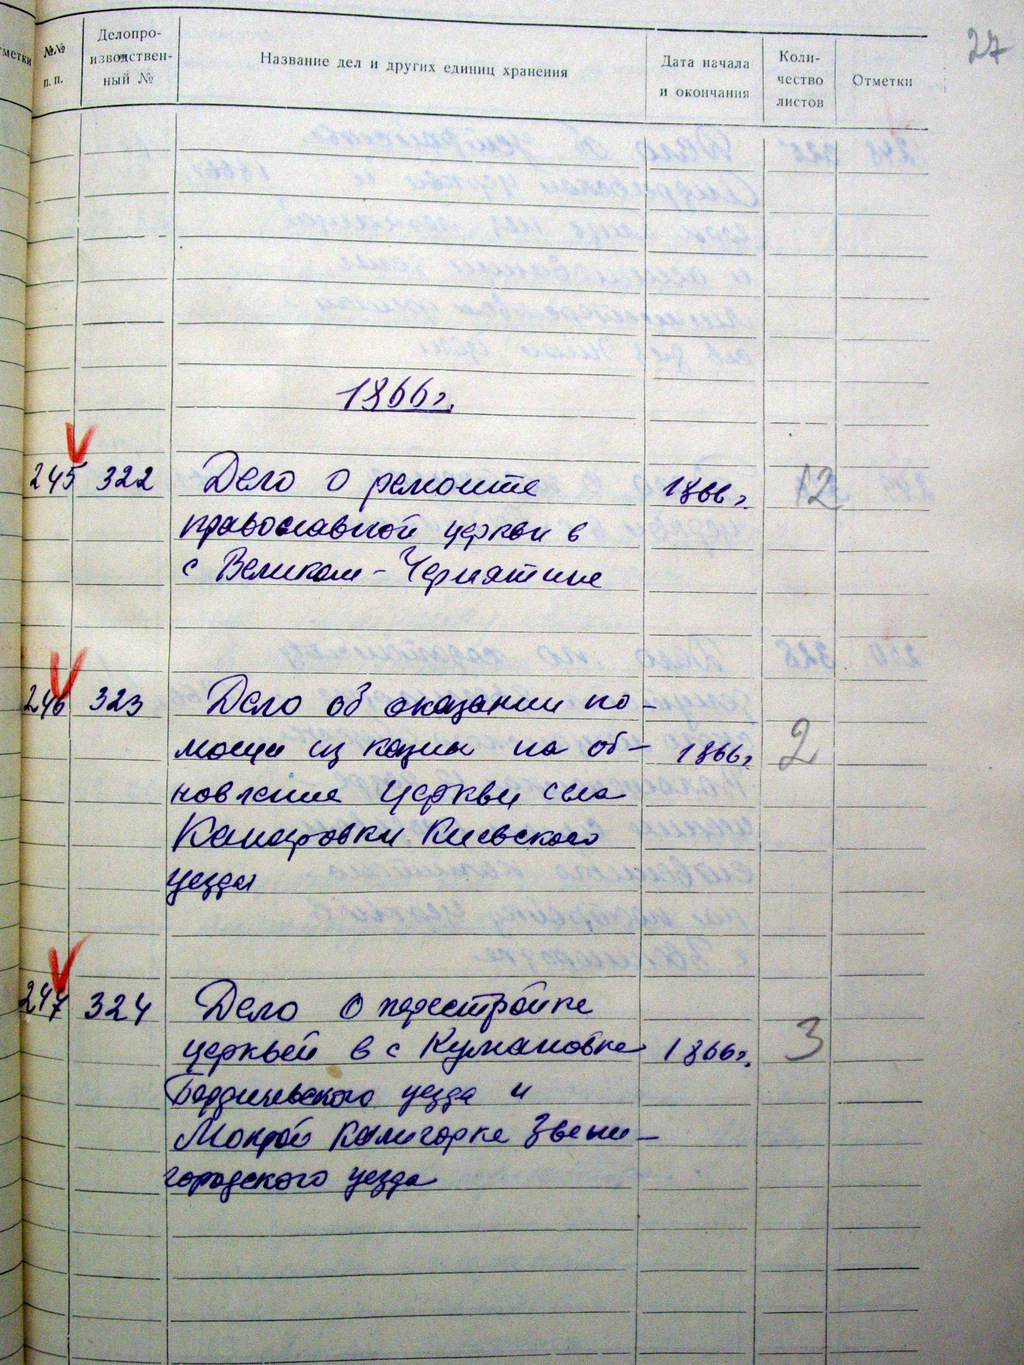 27
метки
№№ п. п.
Делопро-
изводствен-
ный №
Название дел и других единиц хранения
Дата начала
и окончания
Коли-
чество
листов
Отметки
1866 г.
245 322 Дело о ремонте 1866 г. 12
православной церкви в
с Великом-Чернятине
246 323 Дело об оказании по-
мощи из казны на об- 1866 г. 2
новление церкви села
Уезда
Киевского
247 324 Дело о перестройке
церквей в с Кумановке 1866 г. 3
Бердичевского уезда и
Мокрой Калигорке Звени-
городского уезда